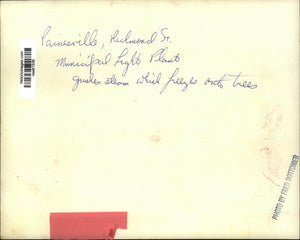 Painesville, Richmond St.
Municipal Light Plant
gushes steam which freezes onto trees
PHOTO BY FRED BOTTOMER